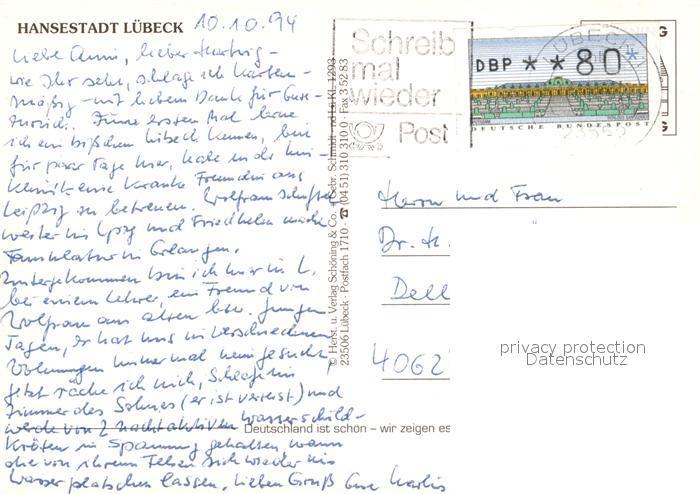 HANSESTADT LÜBECK 10.10.94
Liebe Anni, lieber Hartwig –
wie Ihr seht, schlage ich karten-
mäßig – mit liebem Dank für Eure –
zurück. Zum ersten Mal lerne
ich ein bißchen Lübeck kennen, bin
für paar Tage hier, habe in der Uni-
klinik eine kranke Freundin aus
Leipzig zu betreuen. Wolframs
weiter in Lpzg und Friedhelm macht
in Erlangen.
Untergekommen bin ich hier in L.
bei einem Lehrer, ein Freund von
Wolfram aus alten bzw. jungen
Tagen, er hat uns in verschiedenen
Wohnungen immer mal heimgesucht,
jetzt räche ich mich, schlafe im
Zimmer des Sohnes (er ist verreist) und
werde von 2 nachtaktiven Wasserschild-
kröten in Spannung gehalten, wann
die von ihrem Felsen sich wieder ins
Wasser platschen lassen. Lieben Gruß Eure
Deutschland ist schön – wir zeigen es
© Herst. u. Verlag Schöning & Co. + Gebr. Schmidt · Lü Kl. 1293
23506 Lübeck · Postfach 1710 · ☎ (04 51) 310 310 0 · Fax 3 52 83
Schreib
mal
wieder
Post
DBP * * 80 *
DEUTSCHE BUNDESPOST
LÜBECK
G
G
Herrn und Frau
Dr. H.
Dell
4062
privacy protection
Datenschutz